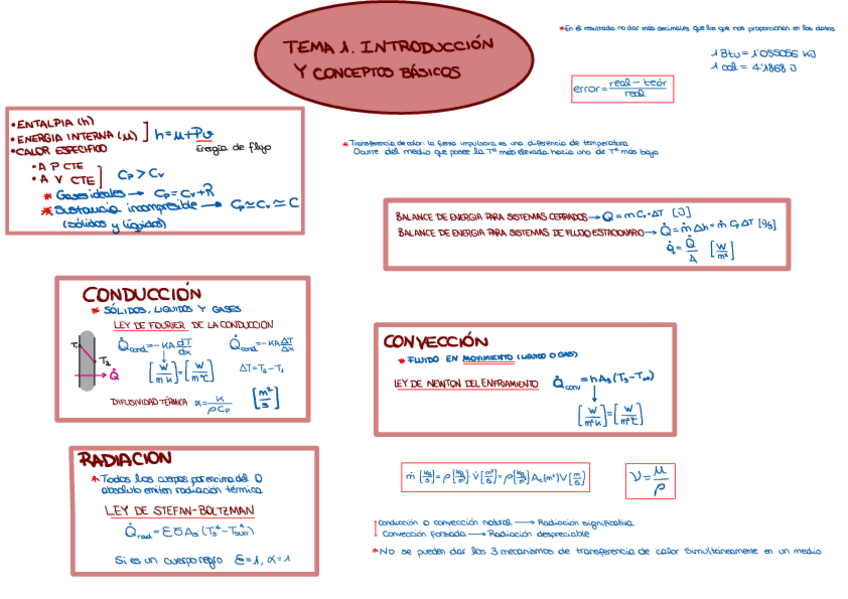 TEMA 1. INTRODUCCIÓN
Y CONCEPTOS BÁSICOS
*En el resultado no dar más decimales que los que nos proporcionan en los datos
1 Btu = 1'055056 KJ
1 cal = 4'1868 J
error = real - teór / real
•ENTALPIA (h)
•ENERGIA INTERNA (μ)
h = μ + Pv
Energía de flujo
•CALOR ESPECIFICO
•A P CTE
•A V CTE
Cp > Cv
* Gases ideales → Cp = Cv + R
* Sustancia incompresible → Cp ≃ Cv ≃ C
(sólidos y líquidos)
* Transferencia de calor: la fuerza impulsora es una diferencia de temperatura.
Ocurre del medio que posee la Tª más elevada hacia uno de Tª más baja
BALANCE DE ENERGIA PARA SISTEMAS CERRADOS → Q = m Cv · ΔT [J]
BALANCE DE ENERGIA PARA SISTEMAS DE FLUJO ESTACIONARIO → Q̇ = ṁ Δh = ṁ Cp ΔT [J/s]
q̇ = Q̇/A [W/m²]
CONDUCCIÓN
* SÓLIDOS, LIQUIDOS Y GASES
LEY DE FOURIER DE LA CONDUCCION
Q̇cond = -KA dT/dx
Q̇cond = -KA ΔT/Δx
T₁
T₂
Q̇
[W/m K] = [W/m ℃]
ΔT = T₂ - T₁
DIFUSIVIDAD TÉRMICA α = K/ρCp [m²/s]
CONVECCIÓN
* FLUIDO EN MOVIMIENTO (LIQUIDO O GAS)
LEY DE NEWTON DEL ENFRIAMIENTO Q̇conv = hAs (Ts - T∞)
[W/m²K] = [W/m²℃]
RADIACION
* Todos los cuerpos por encima del 0
absoluto emiten radiación térmica
LEY DE STEFAN-BOLTZMAN
Q̇rad = εσAs (Ts⁴ - Tsurr⁴)
Si es un cuerpo negro ε = 1, α = 1
ṁ [kg/s] = ρ [kg/m³] · V̇ [m³/s] = ρ [kg/m³] Ac (m²) V [m/s]
ν = μ/ρ
Conducción o convección natural → Radiación significativa
Convección forzada → Radiación despreciable
* No se pueden dar los 3 mecanismos de transferencia de calor simultáneamente en un medio